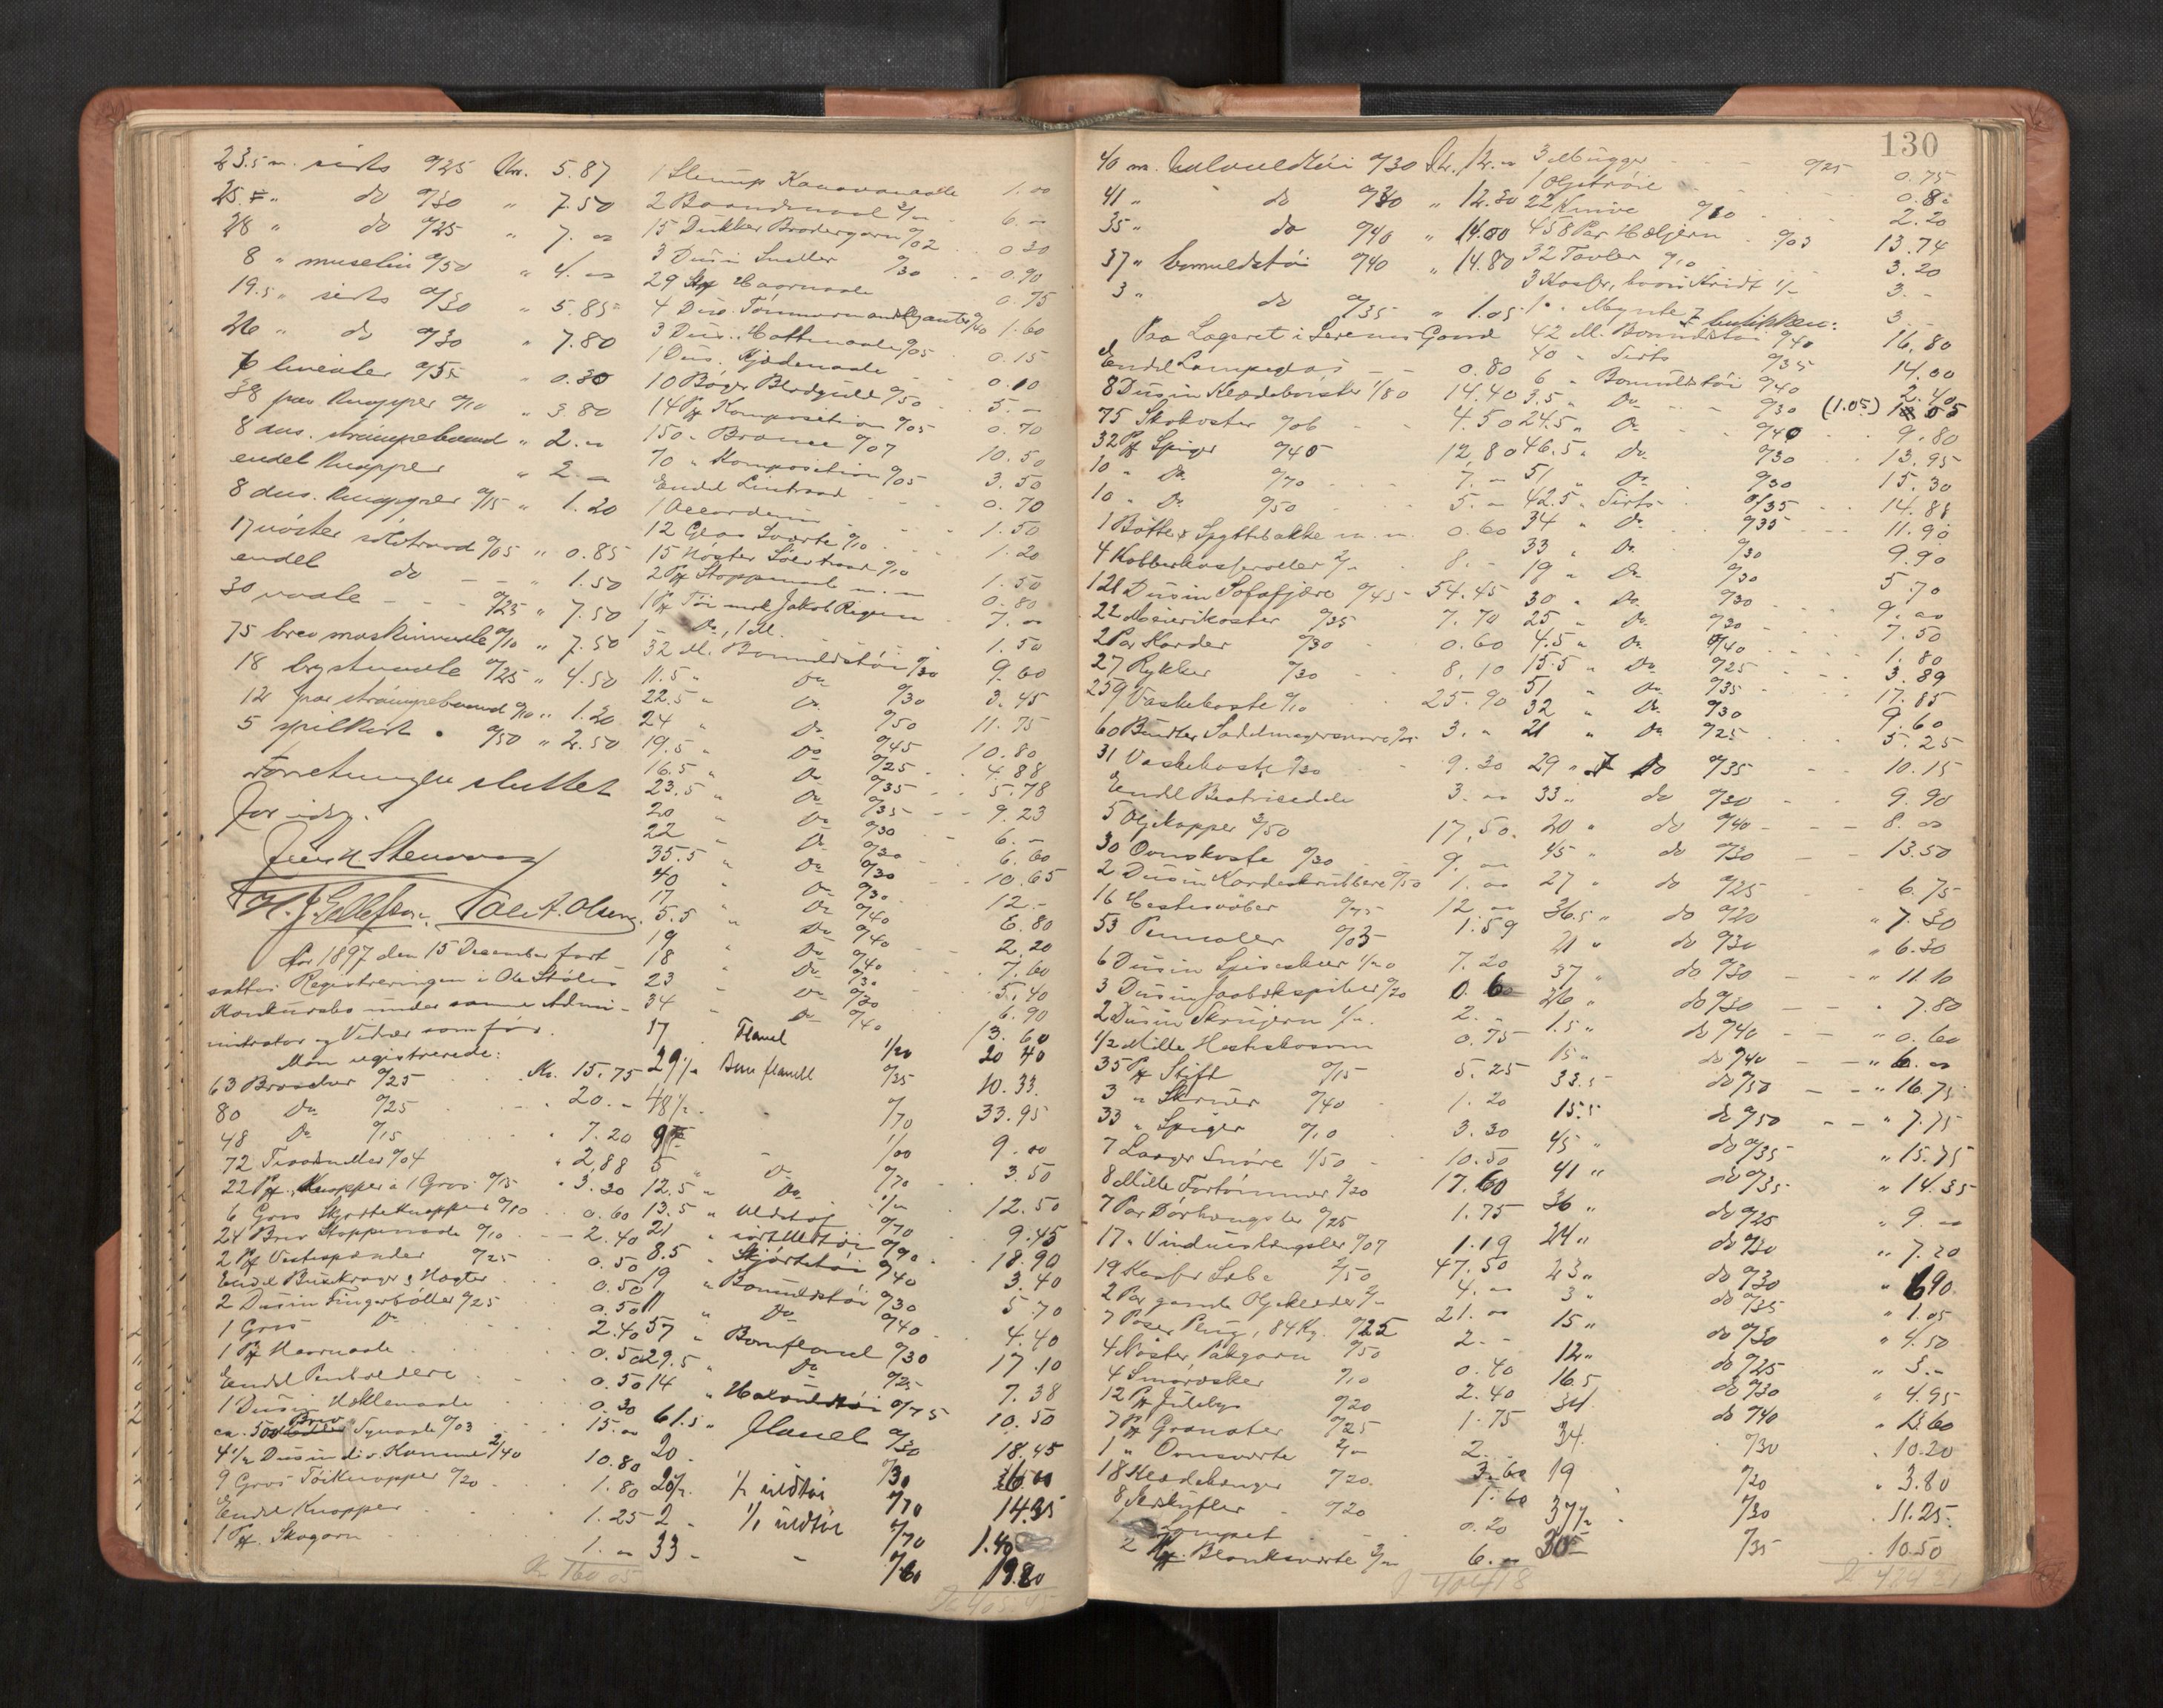 23.5 m. sirts 0/25 Kr. 5.87
25. " do 0/30 " 7.50
28 " do 0/25 " 7. "
8 " muselin 0/50 " 4. "
19.5 " sirts 0/30 " 5.85
26 " do 0/30 " 7.80
6 linialer 0/05 " 0.30
38 par knapper 0/10 " 3.80
8 dus. strømpebaand " 2. "
endel knapper " 2. "
8 dus. knapper 0/15 " 1.20
17 nøster sølvtraad 0/05 " 0.85
endel do " 1.50
30 naale 0/25 " 7.50
75 brev maskinnaale 0/10 " 7.50
18 brystnaale 0/25 " 4.50
12 par strømpebaand 0/10 " 1.20
5 spilkort 0/50 " 2.50
Forretningen sluttet
for idag.
H. J. Ellefsen. Tole A. Olsen.
Aar 1897 den 15 December fort
sattes Registreringen i Ole Støles
Konkursbo under samme Admi-
nistrator og Vidner som før.
Man registrerede:
63 Broscher 0/25 Kr. 15.75
80 Do 0/25 20. "
48 Do 0/15 7.20
72 Traadsneller 0/04 2.88
22 Pk. Knapper à 1 Gros 0/15 3.30
6 Gros Skjorteknapper 0/10 0.60
24 Brev Stoppenaale 0/10 2.40
2 Pk Vestespænder 0/25 0.50
Endel Buxekroger & Hægter 0.50
2 Dusin Fingerbøller 0/25 0.50
1 Gros Do 2.40
1 Pk Haarnaale 0.50
Endel Penholdere 0.50
1 Dusin Heklenaale 0.30
ca. 500 Brev Synaale 0/03 15. "
4 1/2 Dusin div. Kamme 2/40 10.80
9 Gros Tøiknapper 0/20 1.80
Endel Knapper 1.25
1 Pk. Skogarn 1. "
Kr 160.05
1 Stump Kanavanaale 1.00
2 Baandmaal 3/" 6. "
15 Dukker Brodergarn 0/02 0.30
3 Dusin Sneller 0/30 0.90
29 Pk Haarnaale 0.75
4 Dus. Tømmermandsblyanter 0/40 1.60
3 Dus. Hattenaale 0/05 0.15
1 Dus. Kjødenaale 0.10
10 Bøger Bladguld 0/50 5. "
14 Pk Komposition 0/05 0.70
150 " Bronce 0/07 10.50
70 " Komposition 0/05 3.50
Endel Lintraad 0.70
1 Accordeun 1.50
12 Glas Sværte 0/10 1.20
15 Nøster Sølvtraad 0/10 1.50
2 Pk Stoppenaal m. m 0.80
1 Pk Tøi mrk Jakob Rogum 7. "
1 Do, 1 M. 1.50
32 M. Bomuldstøi 0/30 9.60
11.5 " Do 0/30 3.45
22.5 " Do 0/50 11.75
24 " Do 0/45 10.80
19.5 " Do 0/25 4.88
16.5 " Do 0/35 5.78
23.5 " Do 0/35 9.23
20 " Do 0/30 6. "
22 " Do 0/30 6.60
35.5 " Do 0/30 10.65
40 " Do 0/30 12. -
17 " Do 0/40 6.80
5.5 " Do 0/40 2.20
19 " Do 0/40 7.60
18 " Do 0/30 5.40
23 " Do 0/30 6.90
34 " Do 0/40 13.60
17 Flanel 1/20 20 40
29 1/2 Bom flanell 0/35 10.33.
48 1/2 " 0/70 33.95
9 - 1/00 9.00
5 " Do 0/70 3.50
12.5 " Do 1/" 12.50
13.5 " Uldtøj 0/70 9.45
21 " sort Uldtøi 0/90 18.90
8.5 " Skjørtetøi 0/40 3.40
19 " Bomuldstøi 0/30 5.70
11 " Do 0/40 4.40
57 " Bomflanel 0/30 17.10
29.5 " Do 0/25 7.38
14 " Halvuldtøi 0/75 10.50
61.5 " Flanel 0/30 18.45
20 - 0/30 6.00
20 1/2 - 1/2 uldtøi 0/70 14.35
2 - 1/1 uldtøi 0/70 1.40
33 - " 0/60 19.80
130
40 m. Halvuldtøi 0/30 Kr. 12. "
41 " do 0/30 " 12.30
35 " do 0/40 " 14.00
37 " bomuldstøi 0/40 " 14.80
3 " do 0/35 " 1.05
Paa Lageret i Serens Gaard
Endel Lampeglas 0.80
8 Dusin Klædebørster 1/80 14.40
75 Skokoster 0/06 4.50
32 Pk Spiger 0/40 12.80
10 " Do 0/70 7. "
10 " Do 0/50 5. "
1 Bøtte & Spyttebakke m. m. 0.60
4 Kobberkasseroller 2/" 8. "
121 Dusin Sofafjære 0/45 54.45
22 Meierikoster 0/35 7.70
2 Par Karder 0/30 0.60
27 Rykker 0/30 8.10
259 Vaskekoste 0/10 25.90
60 Bundter Sadelmagersnore 0/05 3. "
31 Vaskekoste 0/30 9.30
Endel Beatricedele 3. "
5 Oljekapper 3/50 17.50
30 Ovnskoste 0/30 9. "
2 Dusin Kardeskrubbere 0/50 1. "
16 Hestesvøber 0/75 12. "
53 Pennaler 0/03 1.59
6 Dusin Spiseskeer 1/20 7.20
3 Dusin Jaabokspiber 0/20 0.60
2 Dusin Skruejern 1/". 2. -
1/2 Mille Hestskosøm 0.75
35 Pk Stift 0/15 5.25
3 " Skruer 0/40 1.20
33 " Spiger 0/10 3.30
7 Laager Snøre 1/50 10.50
8 Mille Fortømmer 2/20 17.60
7 Par Dørhængsler 0/25 1.75
17 " Vindueshængsler 0/07 1.19
19 Kasser Sæbe 2/50 47.50
2 Par gamle Oljeklæder 2/" 4. "
7 Poser Plug, 84 Kg. 0/25 21. "
4 Nøster Pakgarn 0/50 2. -
4 Smøræsker 0/10 0.40
12 Pk Julelys 0/20 2.40
7 Pk Granater 0/25 1.75
1 " Ovnsværte 2/" 2. -
18 Klædehænger 0/20 3.60
8 Ildskufler 0/20 1.60
1 Trompet 0.20
2 Pk. Blanksværte 3/" 6. "
3 Mugger 0/25 0.75
1 Oljetrøie 0.80
22 Knive 0/10 2.20
458 Par Hæljern 0/03 13.74
32 Tavler 0/10 3.20
3 Kasser, hvori Kridt 1/- 3. -
1 " Mynte 3. -
I butikken:
42 M. Bomuldstøi 0/40 16.80
40 " Sirts 0/35 14.00
6 " Bomuldstøi 0/40 2.40
3.5 " Do 0/30 (1.05) 1 05
24.5 " Do 0/40 9.80
46.5 " Do 0/30 13.95
51 " Do 0/30 15.30
42.5 " Sirts 0/35 14.88
34 " Do 0/35 11.90
33 " Do 0/30 9.90
19 " Do 0/30 5.70
30 " Do 0/30 9. "
25 " Do 0/30 7.50
4.5 " Do 0/40 1.80
15.5 " Do 0/25 3.89
51 " Do 0/35 17.85
32 " Do 0/30 9.60
21 " Do 0/25 5.25
29 " do 0/35 10.15
33 " do 0/30 9.90
20 " do 0/40 8. "
45 " do 0/30 13.50
27 " do 0/25 6.75
36.5 " do 0/20 " 7.30
21 " do 0/30 " 6.30
37 " do 0/30 " 11.10
26 " do 0/30 " 7.80
1.5 " do 0/40 " 0.60
15 " do 0/40 " 6. "
33.5 do 0/50 " 16.75
15.5 do 0/50 " 7.75
45 " do 0/35 " 15.75
41 " do 0/35 " 14.35
36 " do 0/25 " 9. "
24 " do 0/30 " 7.20
23 " do 0/30 " 6.90
3 " do 0/35 " 1.05
15 " do 0/30 " 4.50
12 " do 0/25 " 3. -
16.5 do 0/30 " 4.95
34 do 0/40 " 13.60
34 0/30 10.20
19 0/20 3.80
37 1/2 0/30 11.25
30 0/35 10.50